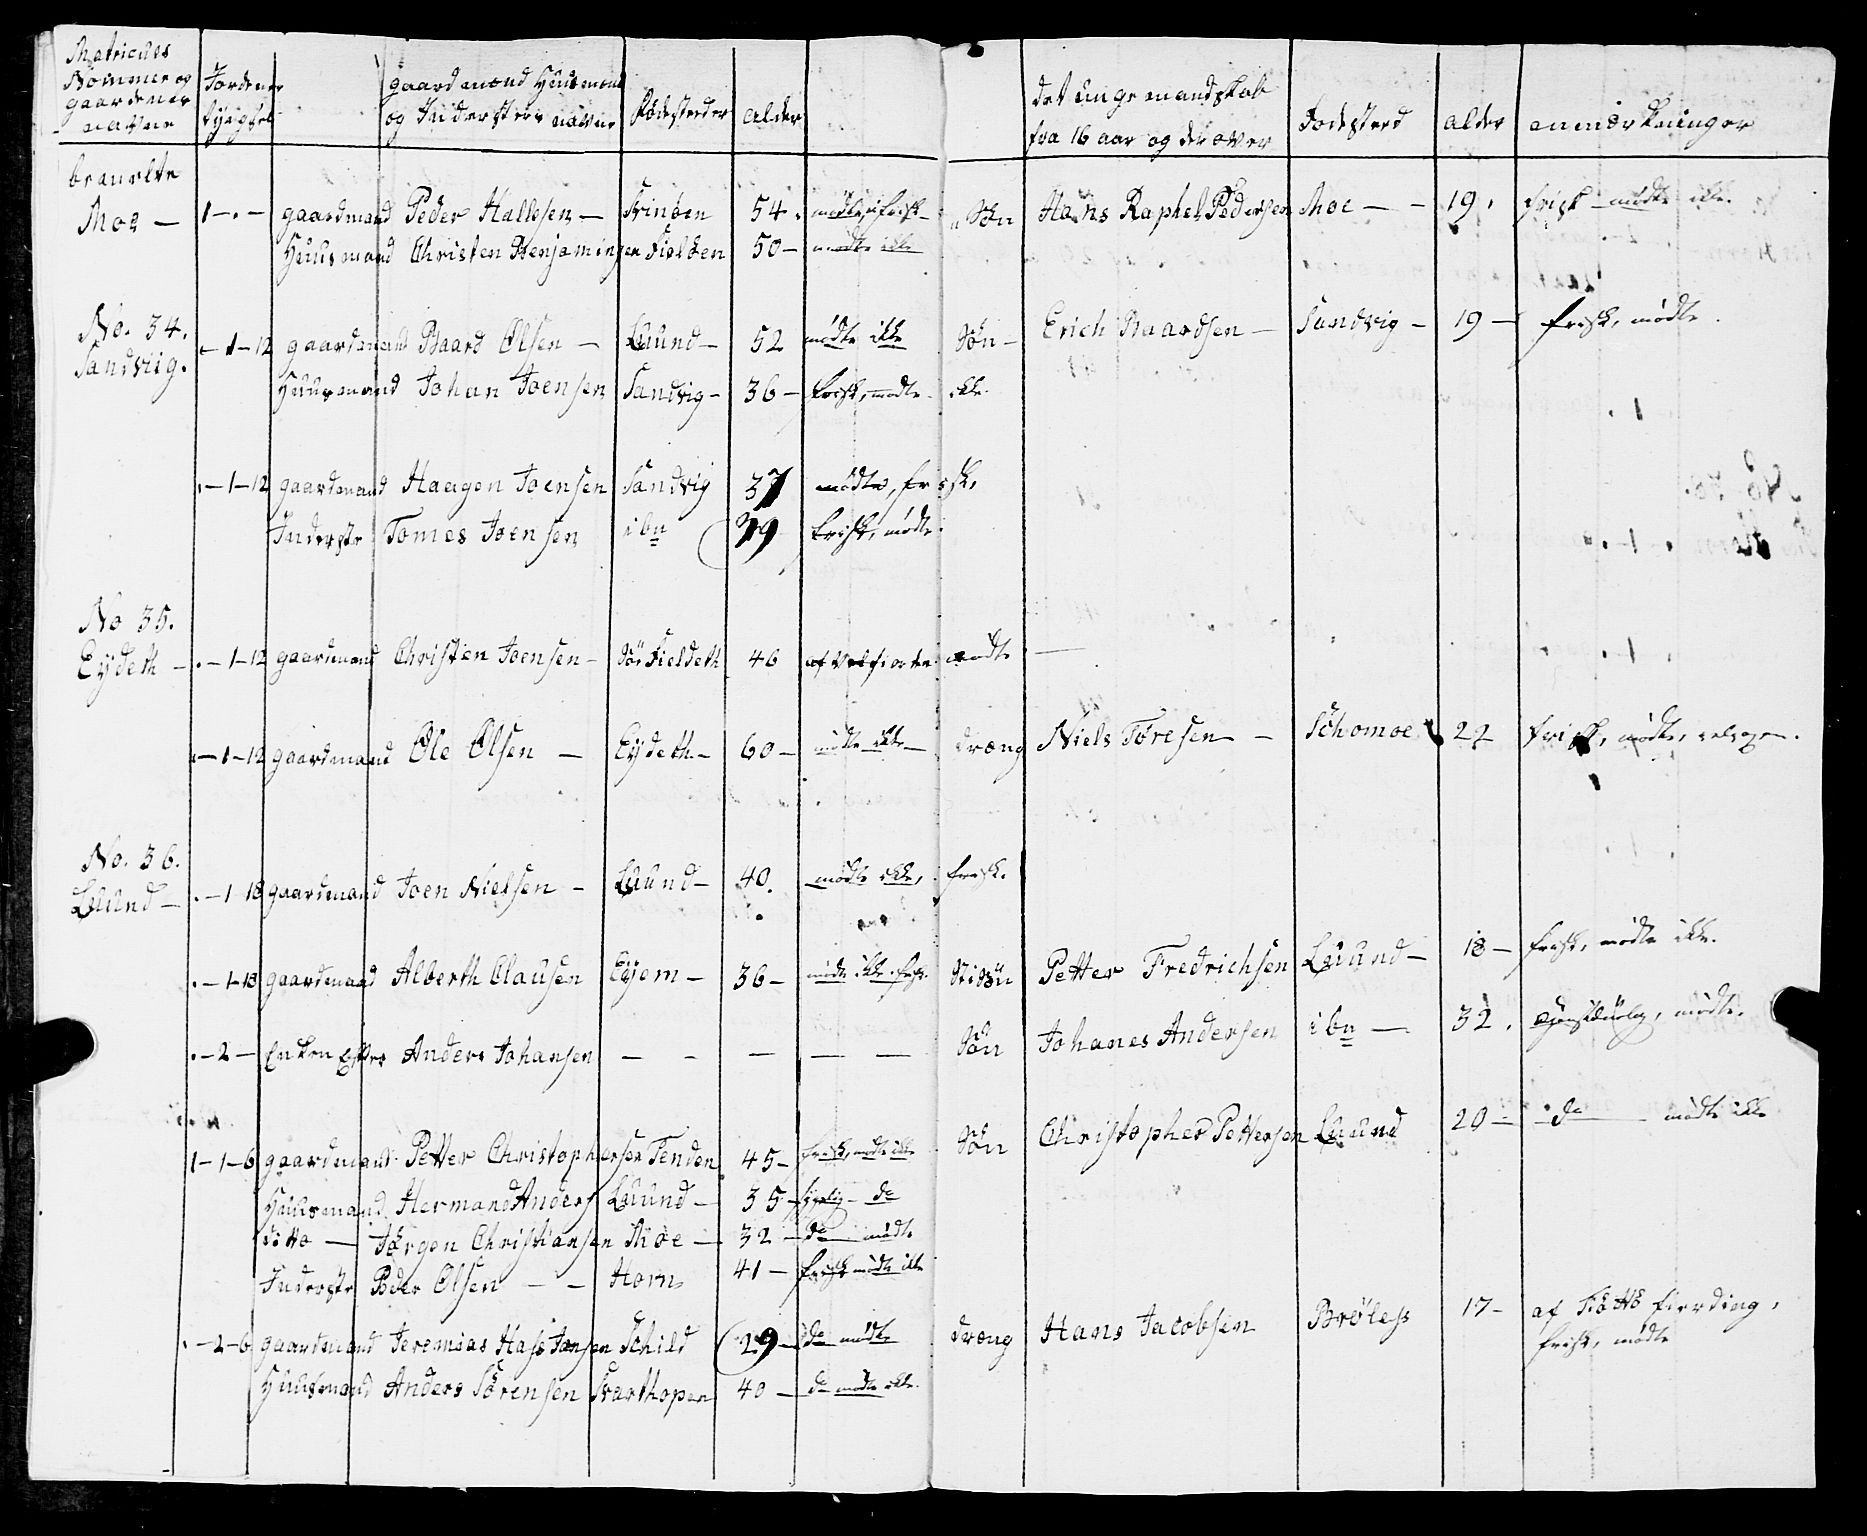 Matriculs
Nommer og
gaardenes
navne
Jordenes
gaardmænd Huusmænd
og Inderster navne
Födesteder
alder
det unge mandskab
fra 16 aar og derover
Fodested
alder
anmærkninger
benevlte
Moe — 1 - . - gaardmand Peder Hallesen — Svinöen 54 . Sön Hans Raphel Pedersen Moe — - 19 . frisk - mødte ikke.
Huusmand Christen Benjaminsen Fieldöen 50 — mødte ikke
No. 34.
Sandviig. . - 1 - 12 gaardmand Baard Olsen — Luund — 52 mødte ikke Søn - Erich Baardsen — Sandvig — 19 — frisk, mødte.
Huusmand Johan Joensen Sandvig - 36 — frisk, mødte ikke.
. - 1 - 12 gaardmand Haagen Joensen Sandvig 37 mødte, frisk,
Inderste Tomes Joensen ibn 39 frisk, mødte.
No 35.
Eÿdeth — . - 1 - 12 gaardmand Christen Joensen — Sör Fieldeth 46 af Velfiorden mødte —
. - 1 - 12 gaardmand Ole Olsen — Eÿdeth — 60 — mødte ikke — dræng Niels Töresen — Schomoe 22 frisk, mødte,
No. 36.
Luund — . - 1 18 gaardmand Joen Nielsen — Luund — 40. mødte ikke, frisk.
. - 1 - 18 gaardmand Alberth Clausen Eÿjem — 36 — mødte ikke. frisk. Stisön Petter Fredrichsen Luund — 18 — frisk, mødte ikke.
. - 2 — Enken Efter Anders Johansen — - — — — Søn Johanes Andersen ibn — 32 . mødte.
1 - 1 - 6 gaardmand Petter Christophersen Tenden 45 — frisk, mødte ikke Søn Christopher Pettersen Luund 20 — do — mødte ikke
Huusmand Hermand Anders Luund — 35 — sÿgelig - do
ditto — Jörgen Christiansen Moe — 32 — do mødte
Inderste Peder Olsen — — Horn 41 — frisk mødte ikke
. - 2 - 6 gaardmand Jeremias Hass Jansen Schild 29 — do mødte dræng Hans Jacobsen Brøless 17 — af Tiötöe fierding,
frisk, mødte
Huusmand Anders Sörensen Svarthopen 40 — do mødte ikke.